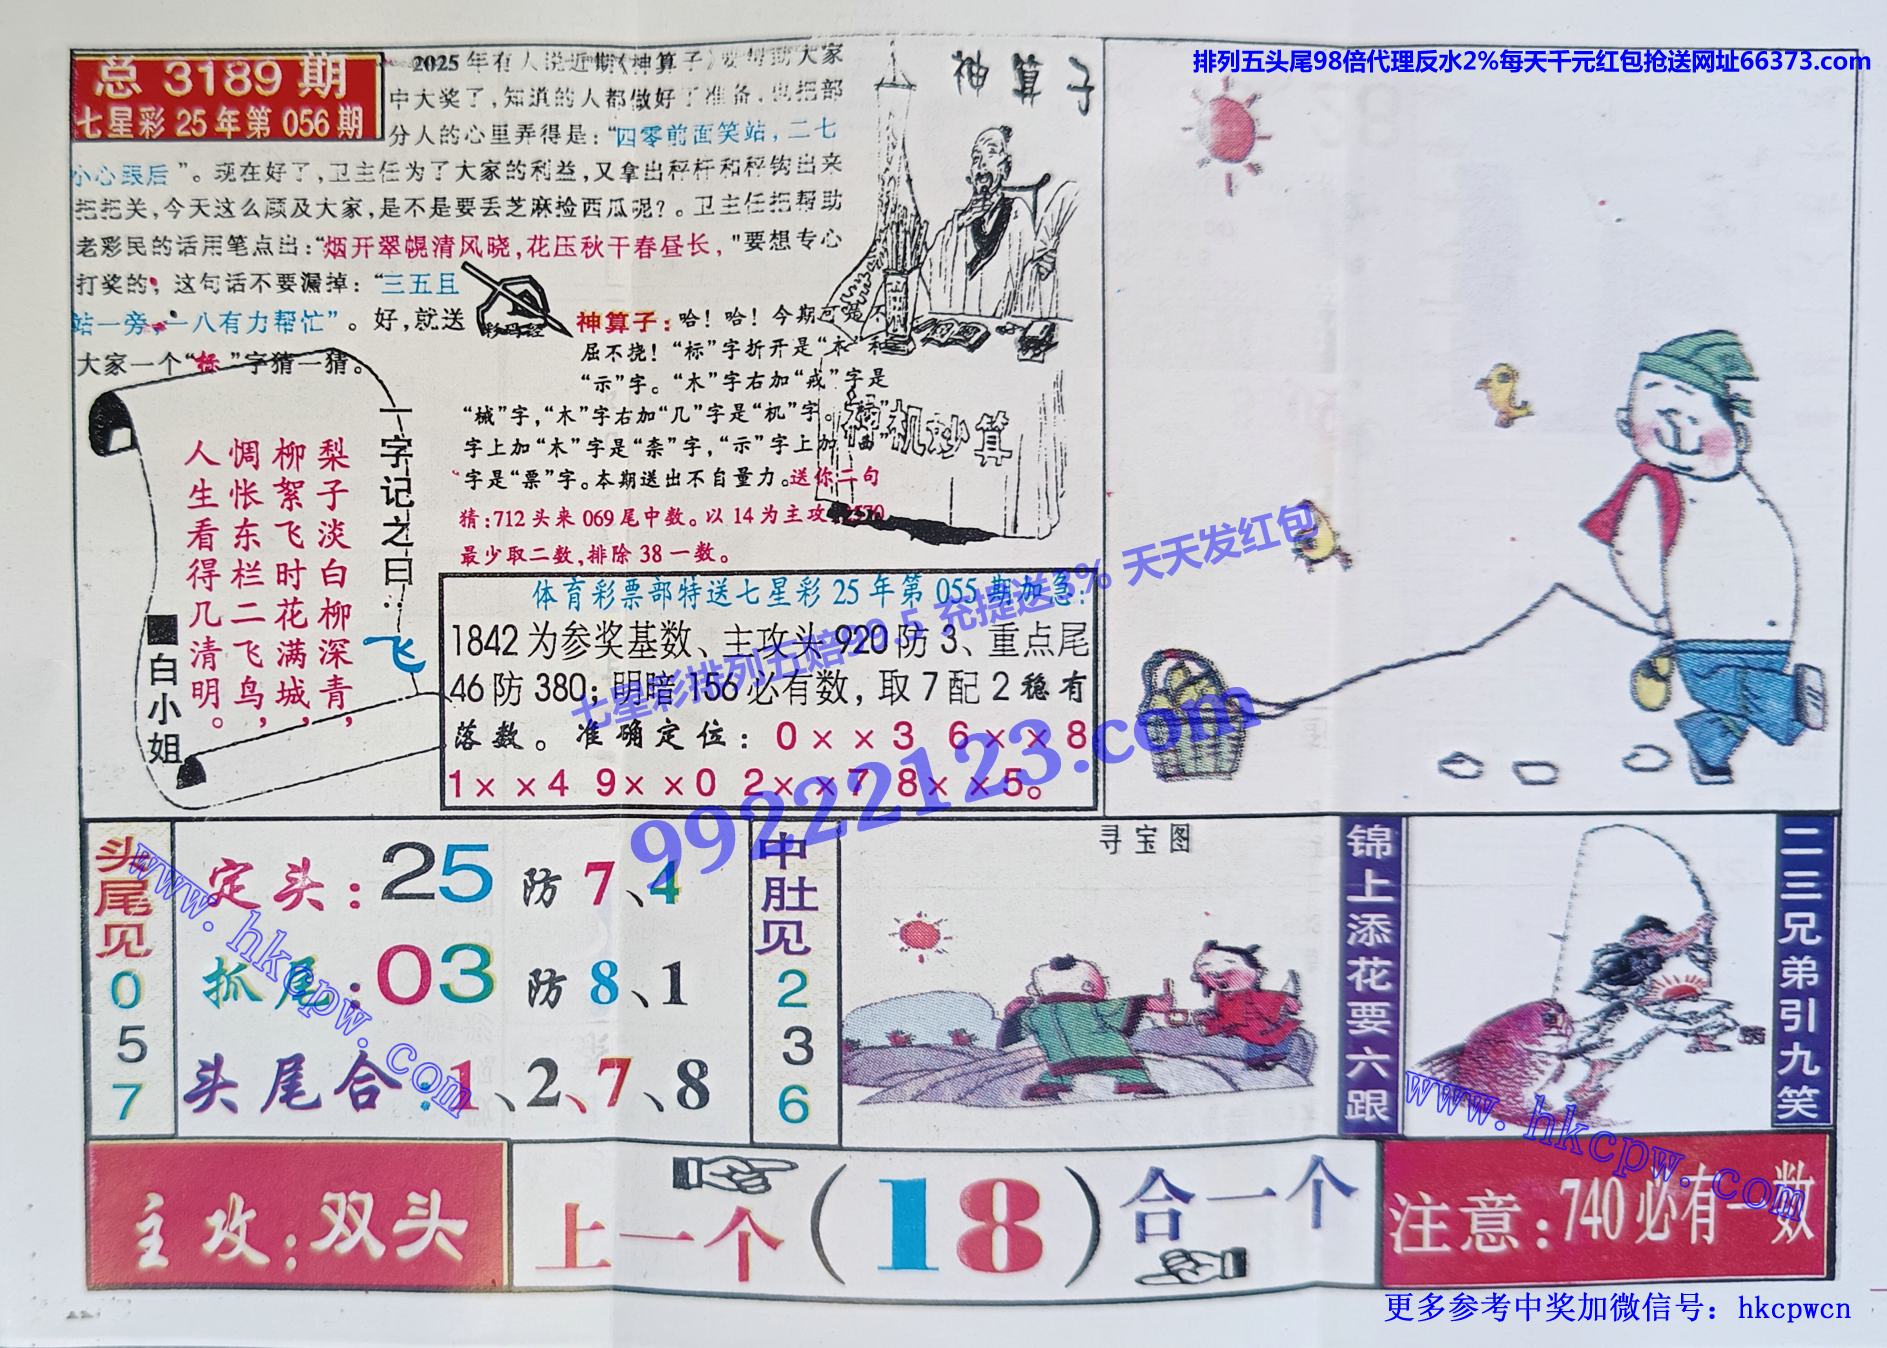 排列五头尾98倍代理反水2%每天千元红包抢送网址66373.com
总 3189 期
七星彩 25 年第 056 期
2025 年有人说近期《神算子》要帮助大家
中大奖了，知道的人都做好了准备，也把部
分人的心里弄得是：“四零前面笑站，二七
小心跟后”。现在好了，卫主任为了大家的利益，又拿出秤杆和秤钩出来
把把关，今天这么顾及大家，是不是要丢芝麻捡西瓜呢？。卫主任把帮助
老彩民的话用笔点出：“烟开翠幌清风晓，花压秋干春昼长，”要想专心
打奖的；这句话不要漏掉：“三五且
站一旁，一八有力帮忙”。好，就送
大家一个“标”字猜一猜。
彩码经
神算子
神算子：哈！哈！今期可强不
屈不挠！“标”字折开是“木”和
“示”字。“木”字右加“戒”字是
“械”字，“木”字右加“几”字是“机”字。“示”
字上加“木”字是“柰”字，“示”字上加“西”
字是“票”字。本期送出不自量力。送你二句
猜：712 头来 069 尾中数。以 14 为主攻，2570
最少取二数，排除 38 一数。
神机妙算
一字记之曰：飞
梨子淡白柳深青，
柳絮飞时花满城，
惆怅东栏二飞鸟，
人生看得几清明。
■白小姐
体育彩票部特送七星彩 25 年第 055 期加急：
1842 为参奖基数、主攻头 920 防 3、重点尾
46 防 380；明暗 156 必有数，取 7 配 2 稳有
落数。准确定位：0××3 6××8
1××4 9××0 2××7 8××5。
七星彩排列五赔99.5 充提送3% 天天发红包
99222123.com
头尾见
0
5
7
定头：25 防 7、4
抓尾：03 防 8、1
头尾合：1、2、7、8
www.hkcpw.com
中肚见
2
3
6
寻宝图
锦上添花要六跟
二三兄弟引九笑
www.hkcpw.com
主攻：双头
上一个（18）合一个
注意：740 必有一数
更多参考中奖加微信号：hkcpwcn